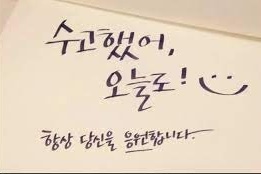 수고했어,
오늘도!
항상 당신을 응원합니다.